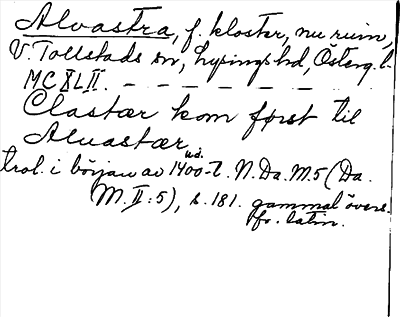 Alvastra, f. kloster, nu ruin,
V. Tollstads sn, Lysings hd, Österg. l.
MCXLII. – – – – – – –
Clastær kom først til
Alvastær
trol. i början av 1400-t. N.Da.M.5 (Da.
M.II:5), s. 181. gammal övers.
fr. latin.